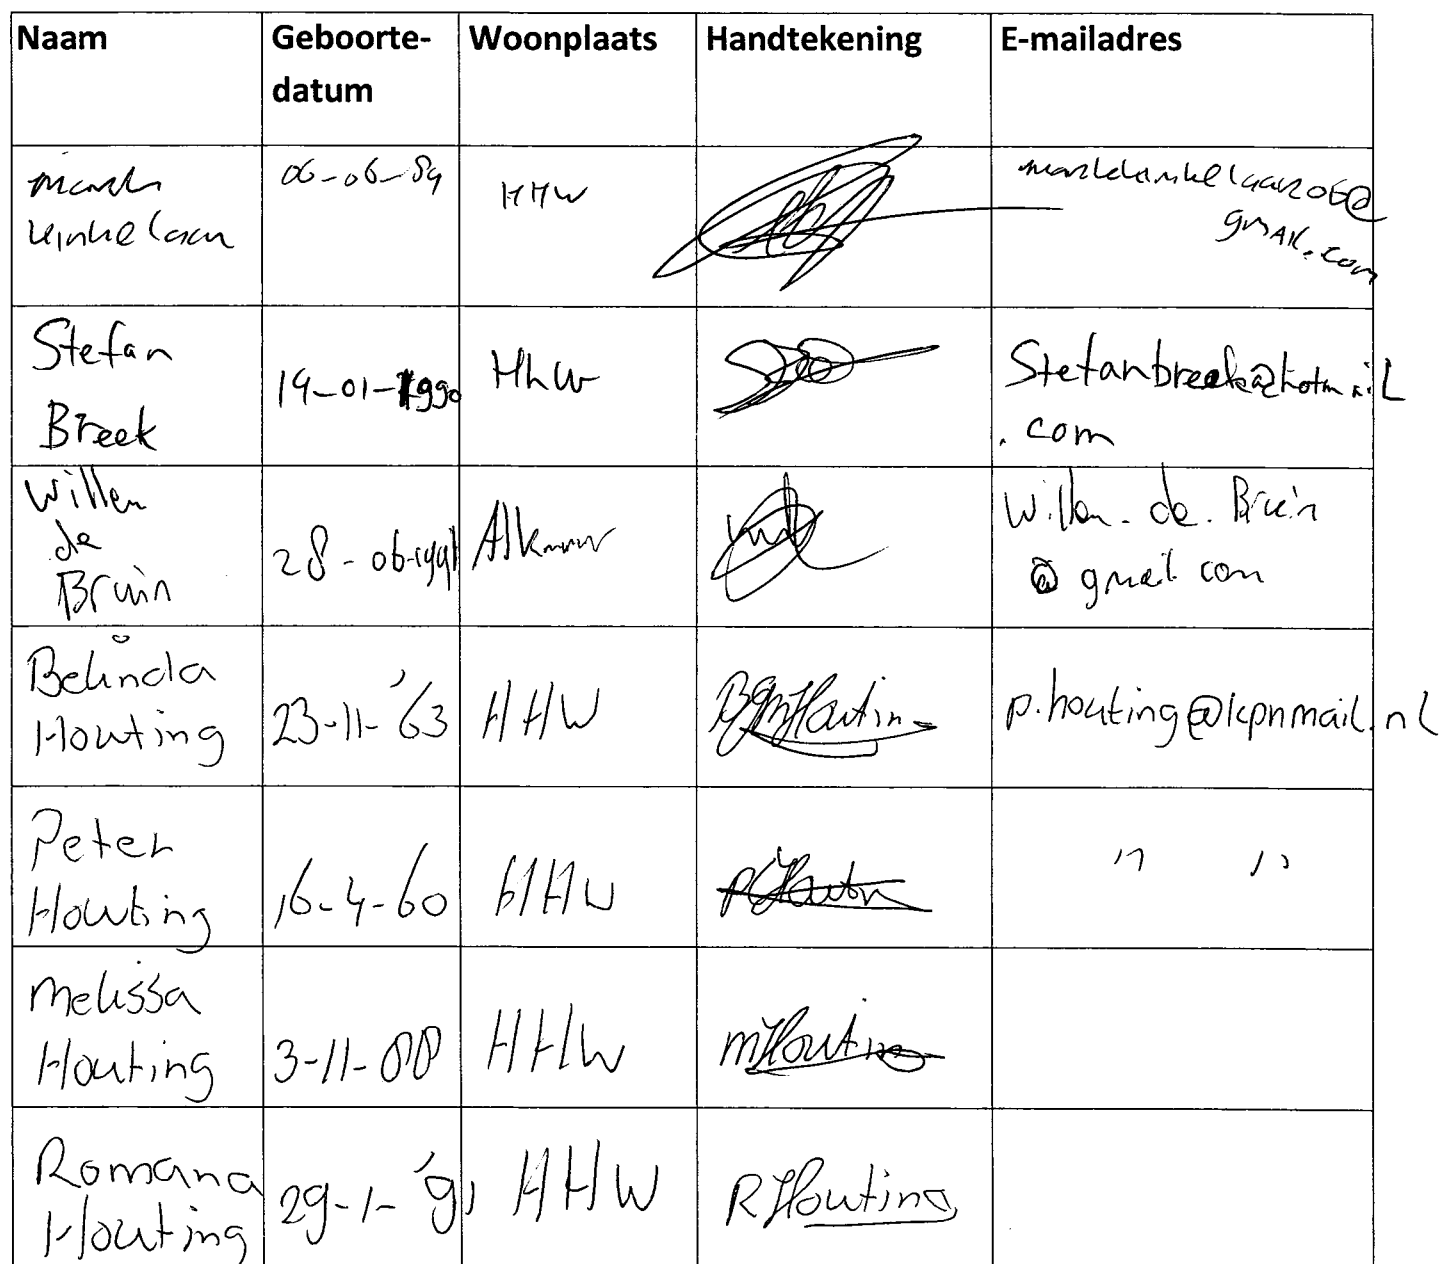 Naam Geboorte- Woonplaats Handtekening E-mailadres
datum
06-06-89 HHW
gmail.com
Stefan
Breek 14-01-1990 HhW Stefanbreek@hotmail
.com
Willem
de
Bruin 28-06-1991 Alkmaar Willem.de.Bruin
@gmail.com
Belinda
Houting 23-11-'63 HHW BGMHouting p.houting@kpnmail.nl
Peter
Houting 16-4-60 HHW PHouting " "
Melissa
Houting 3-11-88 HHW MHouting
Romana
Houting 29-1-'91 HHW RHouting